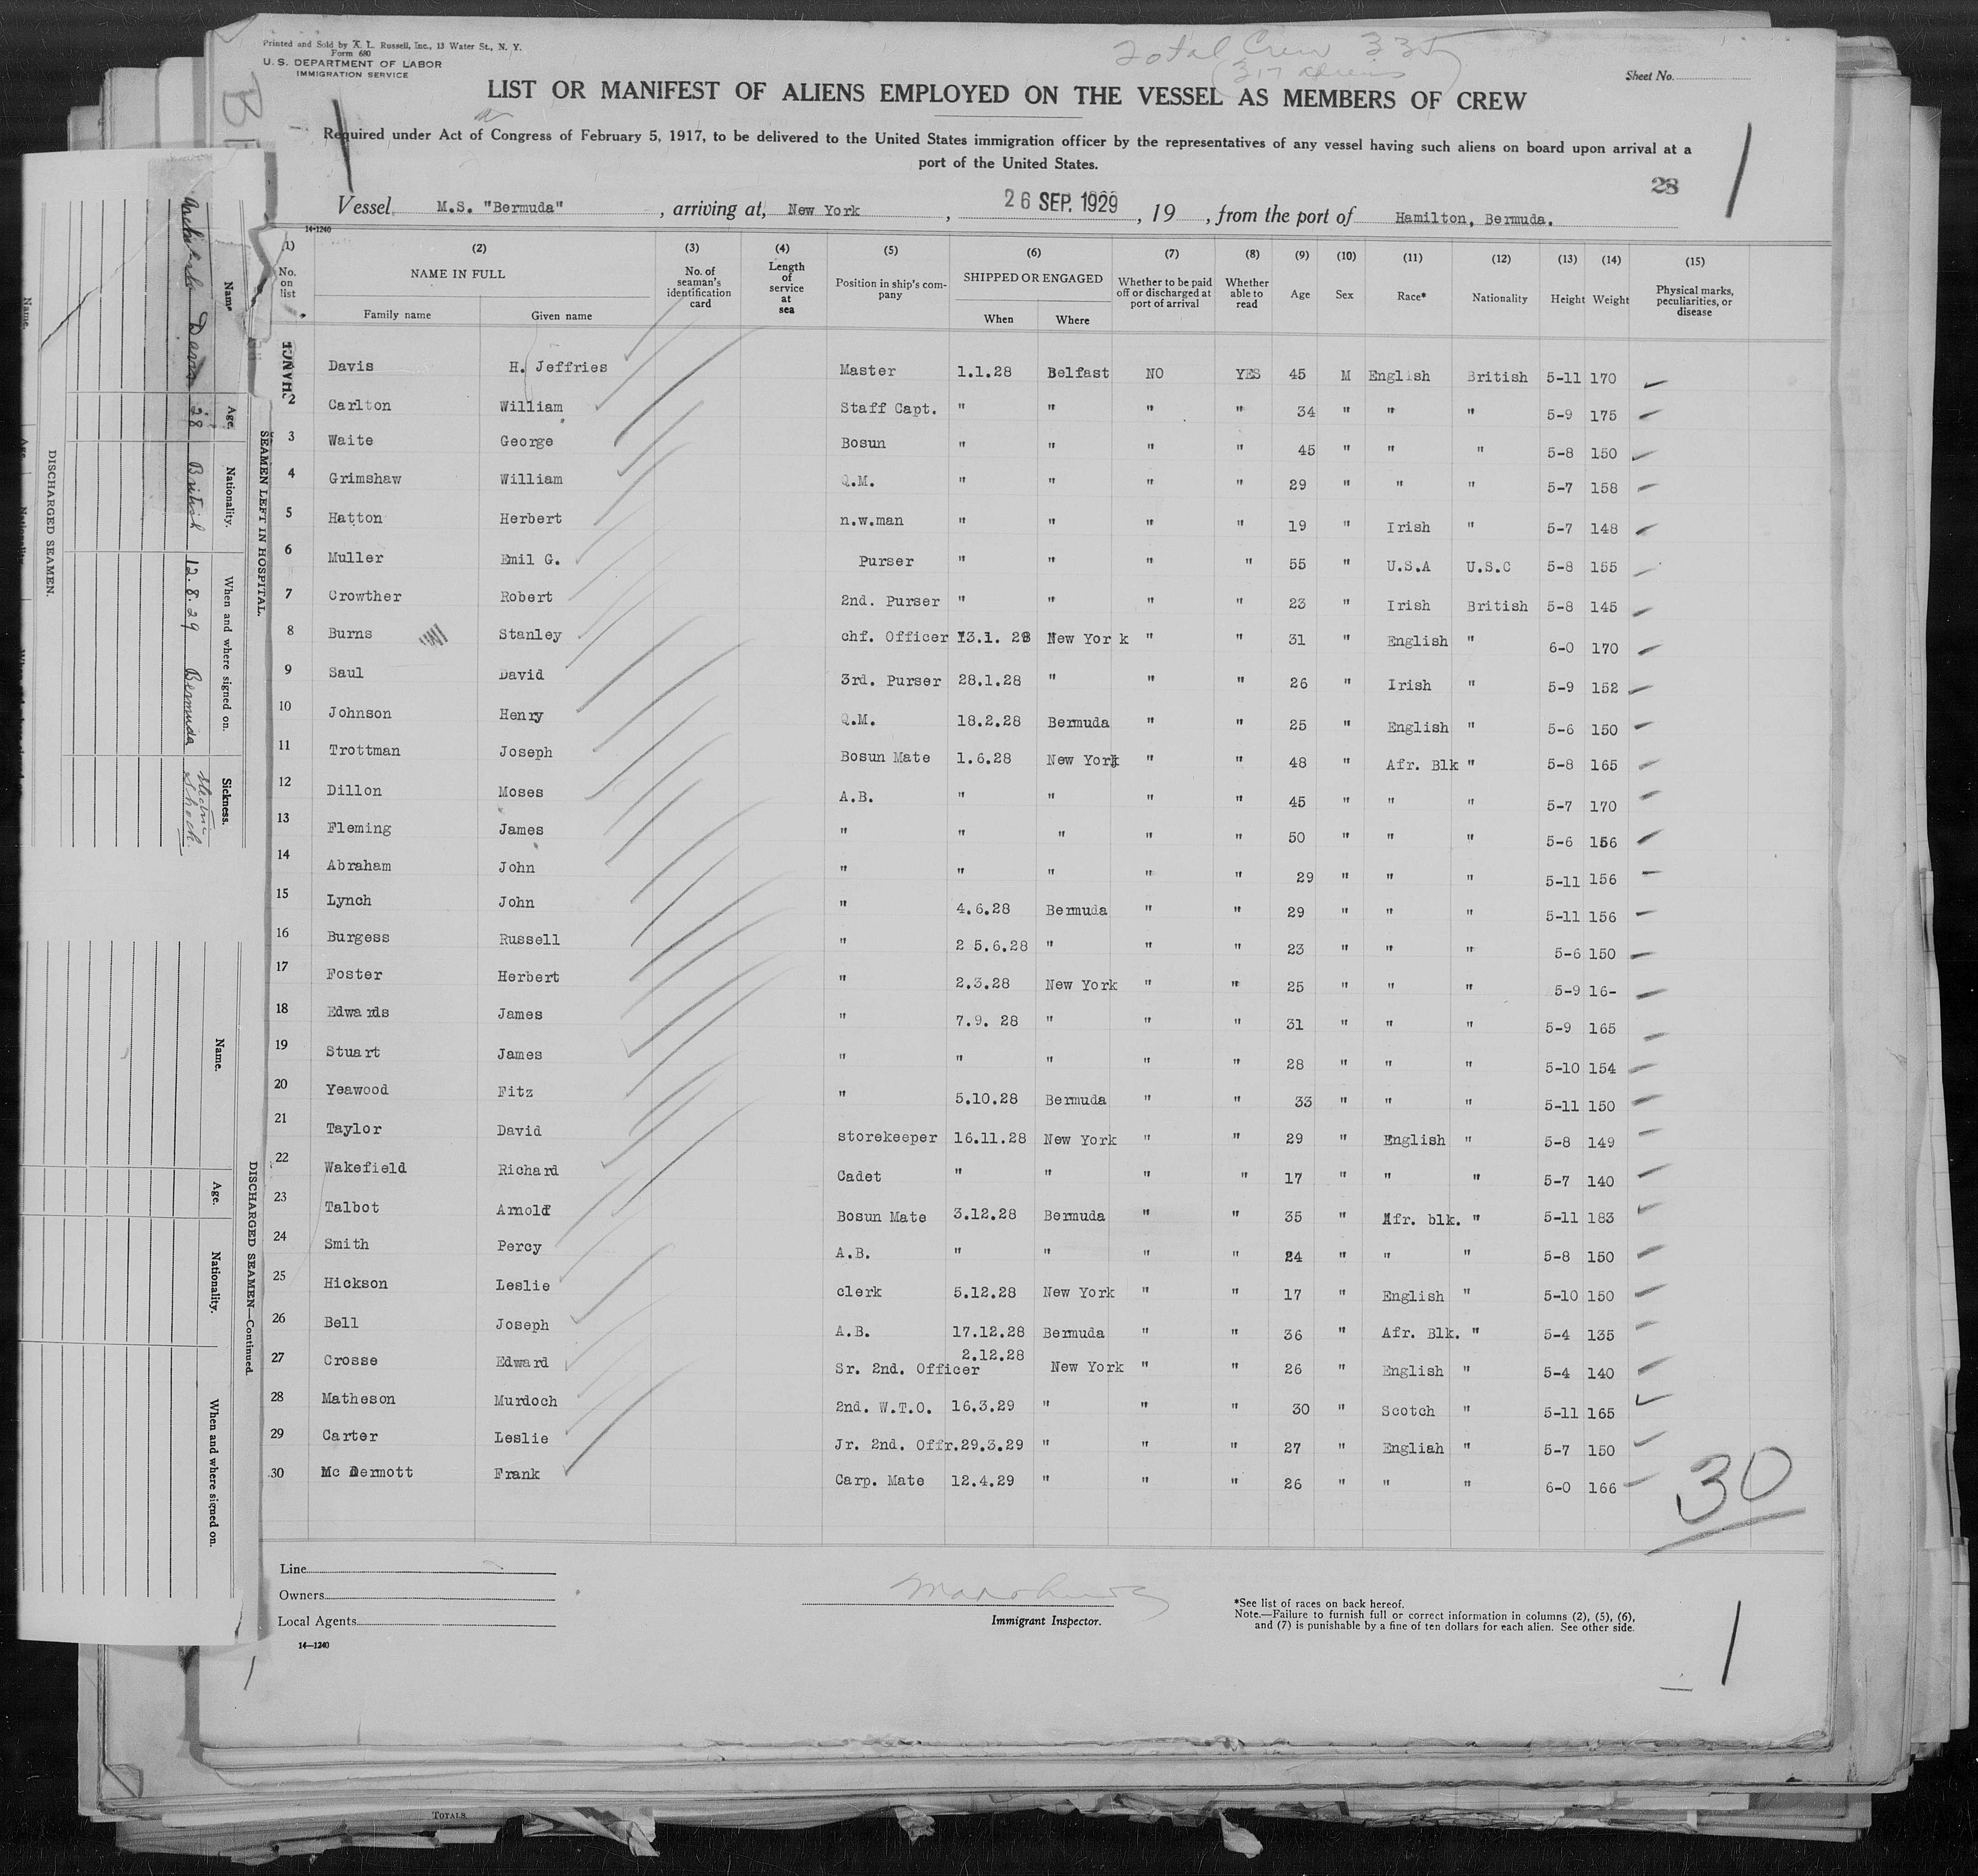 Printed and Sold by A. L. Russell, Inc., 13 Water St., N. Y.
Form 680
U. S. DEPARTMENT OF LABOR
IMMIGRATION SERVICE
Total Crew 335
(317 aliens)
Sheet No.
LIST OR MANIFEST OF ALIENS EMPLOYED ON THE VESSEL AS MEMBERS OF CREW
Required under Act of Congress of February 5, 1917, to be delivered to the United States immigration officer by the representatives of any vessel having such aliens on board upon arrival at a
port of the United States.
28
Vessel M.S. "Bermuda", arriving at, New York, 26 SEP. 1929, 19, from the port of Hamilton, Bermuda.
14-1240
(1) (2) (3) (4) (5) (6) (7) (8) (9) (10) (11) (12) (13) (14) (15)
No. on list NAME IN FULL No. of seaman's identification card Length of service at sea Position in ship's company SHIPPED OR ENGAGED Whether to be paid off or discharged at port of arrival Whether able to read Age Sex Race* Nationality Height Weight Physical marks, peculiarities, or disease
Family name Given name When Where
Davis H. Jeffries Master 1.1.28 Belfast NO YES 45 M English British 5-11 170
2 Carlton William Staff Capt. " " " " 34 " " " 5-9 175
3 Waite George Bosun " " " " 45 " " " 5-8 150
4 Grimshaw William Q.M. " " " " 29 " " " 5-7 158
5 Hatton Herbert n.w.man " " " " 19 " Irish " 5-7 148
6 Muller Emil G. Purser " " " " 55 " U.S.A U.S.C 5-8 155
7 Crowther Robert 2nd. Purser " " " " 23 " Irish British 5-8 145
8 Burns Stanley chf. Officer 13.1. 28 New Yor k " " 31 " English " 6-0 170
9 Saul David 3rd. Purser 28.1.28 " " " 26 " Irish " 5-9 152
10 Johnson Henry Q.M. 18.2.28 Bermuda " " 25 " English " 5-6 150
11 Trottman Joseph Bosun Mate 1.6.28 New York " " 48 " Afr. Blk " 5-8 165
12 Dillon Moses A.B. " " " " 45 " " " 5-7 170
13 Fleming James " " " " " 50 " " " 5-6 156
14 Abraham John " " " " " 29 " " " 5-11 156
15 Lynch John " 4.6.28 Bermuda " " 29 " " " 5-11 156
16 Burgess Russell " 2 5.6.28 " " " 23 " " " 5-6 150
17 Foster Herbert " 2.3.28 New York " " 25 " " " 5-9 16-
18 Edwards James " 7.9. 28 " " " 31 " " " 5-9 165
19 Stuart James " " " " " 28 " " " 5-10 154
20 Yeawood Fitz " 5.10.28 Bermuda " " 33 " " " 5-11 150
21 Taylor David storekeeper 16.11.28 New York " " 29 " English " 5-8 149
22 Wakefield Richard Cadet " " " " 17 " " " 5-7 140
23 Talbot Arnold Bosun Mate 3.12.28 Bermuda " " 35 " Afr. blk. " 5-11 183
24 Smith Percy A.B. " " " " 24 " " " 5-8 150
25 Hickson Leslie clerk 5.12.28 New York " " 17 " English " 5-10 150
26 Bell Joseph A.B. 17.12.28 Bermuda " " 36 " Afr. Blk. " 5-4 135
27 Crosse Edward Sr. 2nd. Officer 2.12.28 New York " " 26 " English " 5-4 140
28 Matheson Murdoch 2nd. W.T.O. 16.3.29 " " " 30 " Scotch " 5-11 165
29 Carter Leslie Jr. 2nd. Offr. 29.3.29 " " " 27 " Engliah " 5-7 150
30 Mc Dermott Frank Carp. Mate 12.4.29 " " " 26 " " " 6-0 166
30
Line
Owners
Local Agents
14—1240
Immigrant Inspector.
*See list of races on back hereof.
Note.—Failure to furnish full or correct information in columns (2), (5), (6),
and (7) is punishable by a fine of ten dollars for each alien. See other side.
SEAMEN LEFT IN HOSPITAL.
Name Age. Nationality. When and where signed on. Sickness.
Davis 28 British 12.8.29 Bermuda Electric Shock.
DISCHARGED SEAMEN.
Name. Age.
DISCHARGED SEAMEN—Continued.
Name. Age. Nationality. When and where signed on.
TOTALS